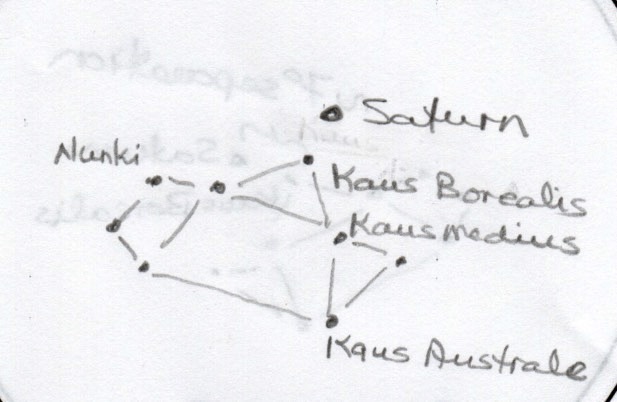 Saturn
Nunki
Kaus Borealis
Kaus medius
Kaus Australe